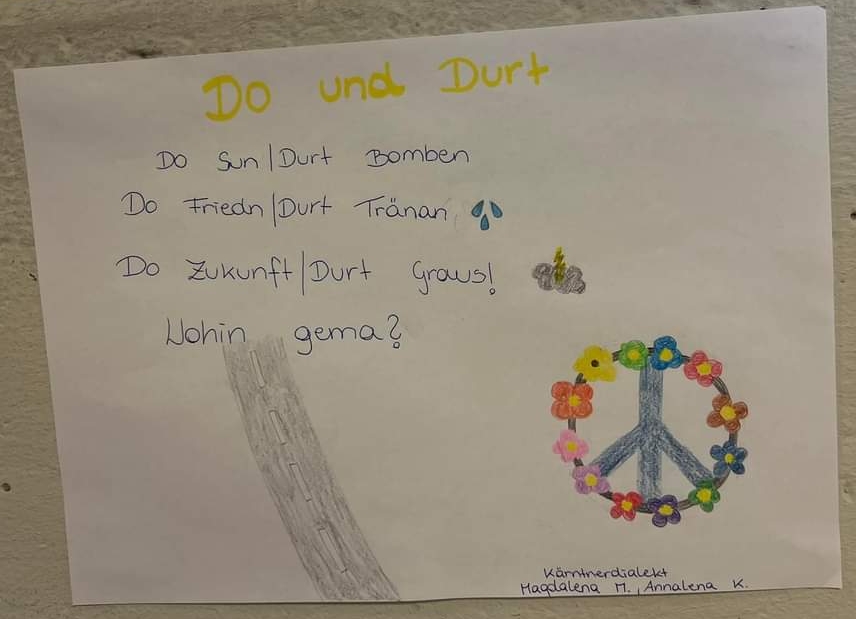 Do und Durt
Do Sun/Durt Bomben
Do Friedn/Durt Tränan
Do Zukunft/Durt Graus!
Wohin gema?
Kärntnerdialekt
Magdalena M., Annalena K.